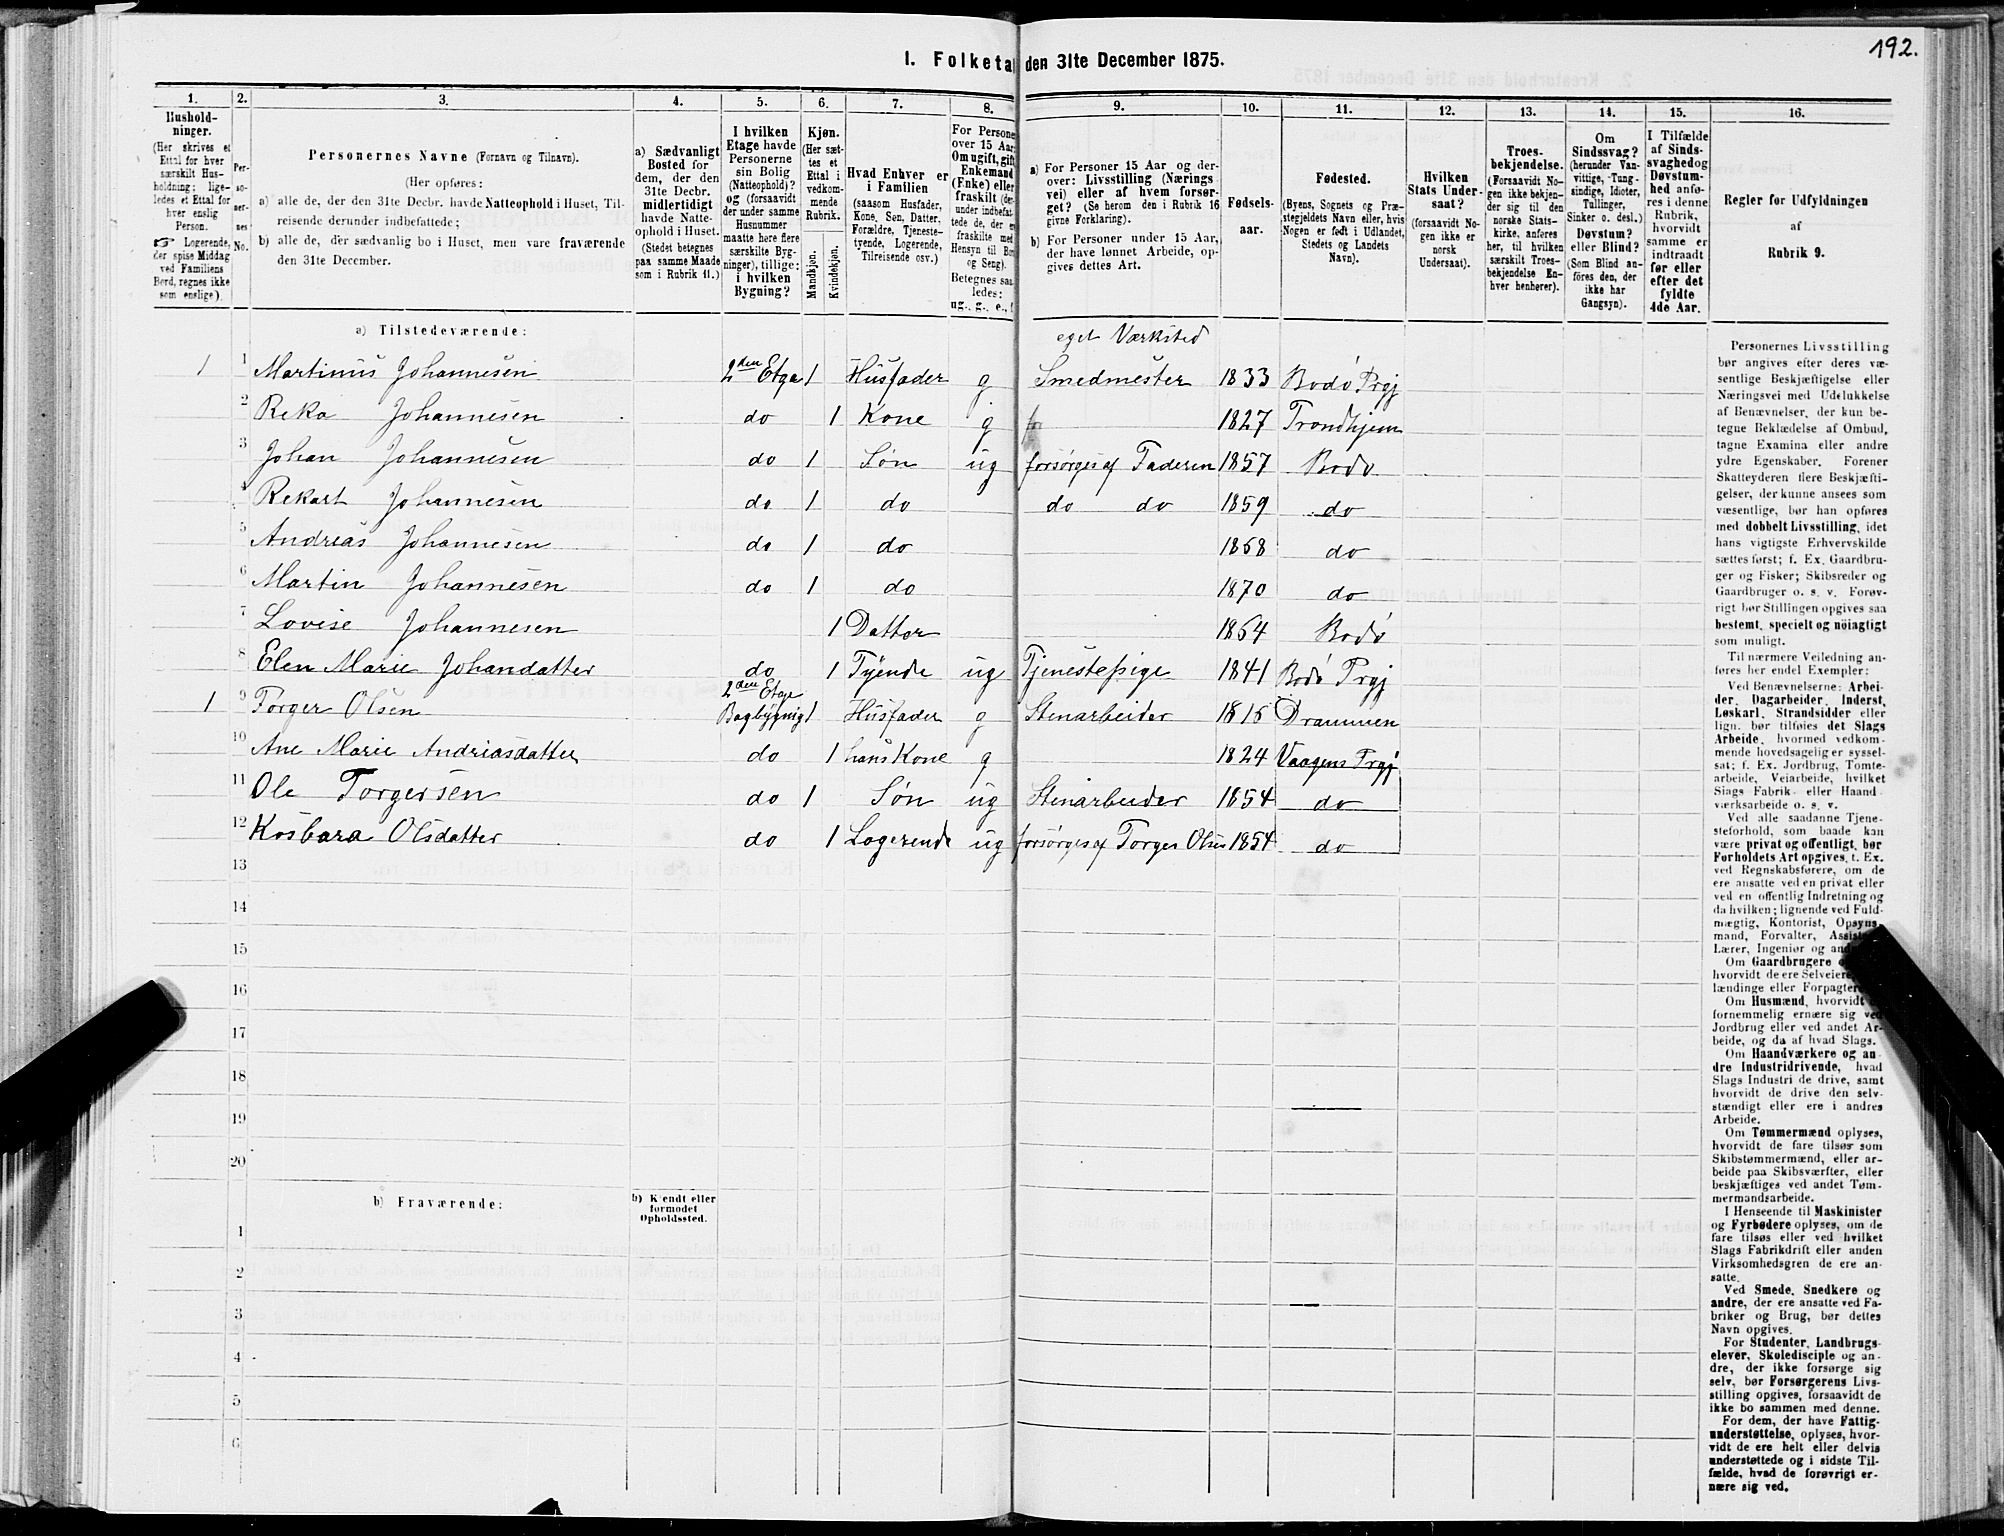 192.
I. Folketa den 31te December 1875.
1. 2. 3. 4. 5. 6. 7. 8. 9. 10. 11. 12. 13. 14. 15. 16.
Husholdninger.
(Her skrives et
Ettal for hver
særskilt Husholdning; ligeledes et Ettal for
hver enslig
Person.
☞ Logerende,
der spise Middag
ved Familiens
Bord, regnes ikke
som enslige).
Personernes No.
Personernes Navne (Fornavn og Tilnavn).
(Her opføres:
a) alle de, der den 31te Decbr. havde Natteophold i Huset, Tilreisende derunder indbefattede;
b) alle de, der sædvanlig bo i Huset, men vare fraværende
den 31te December.
a) Sædvanligt
Bosted for
dem, der den
31te Decbr.
midlertidigt
havde Natteophold i Huset.
(Stedet betegnes
paa samme Maade
som i Rubrik 11.)
I hvilken
Etage havde
Personerne
sin Bolig
(Natteophold)?
og (forsaavidt
der under samme
Husnummer
maatte høre flere
særskilte Bygninger), tillige:
i hvilken
Bygning?
Kjøn.
(Her sættes et
Ettal i
vedkommende
Rubrik.
Mandkjøn.
Kvindekjøn.
Hvad Enhver er
i Familien
(saasom Husfader,
Kone, Søn, Datter,
Forældre, Tjenestetyende, Logerende,
Tilreisende osv.)
For Persone
over 15 Aar:
Om ugift, gift
Enkemand
(Enke) eller
fraskilt (der-
under indbefat-
tede de, der
fraskilte med
Hensyn til Bo
og Seng).
Betegnes saa-
ledes:
ug., g., e.,
a) For Personer 15 Aar og derover: Livsstilling (Næringsvei) eller af hvem forsørget? (Se herom den i Rubrik 16
givne Forklaring).
b) For Personer under 15 Aar,
der have lønnet Arbeide, opgives dettes Art.
Fødselsaar.
Fødested.
(Byens, Sognets og Præstegjeldets Navn eller, hvis
Nogen er født i Udlandet,
Stedets og Landets
Navn).
Hvilken
Stats Undersaat?
(forsaavidt Nogen ikke er
norsk
Undersaat).
Troesbekjendelse.
(Forsaavidt Nogen ikke bekjender sig til den
norske Statskirke, anføres
her, til hvilken
særskilt Troesbekjendelse Enhver henhører).
Om
Sindssvag?
(herunder Vanvittige, Tungsindige, Idioter,
Tullinger,
Sinker o. desl.)
Døvstum?
eller Blind?
(Som Blind anføres den, der
ikke har
Gangsyn).
I Tilfælde
af Sindssvaghed og
Døvstumhed anføres i denne
Rubrik,
hvorvidt
samme er
indtraadt
før eller
efter det
fyldte
4de Aar.
Regler for Udfyldningen
af
Rubrik 9.
a) Tilstedeværende:
eget Værksted
1 1 Martinus Johannesen 2den Etga 1 Husfader g Smedmester 1833 Bodø Prgj
2 Reka Johannesen do 1 Kone g 1827 Trondhjem
3 Johan Johannesen do 1 Søn ug forsørges af Faderen 1857 Bodø
4 Rekart Johannesen do 1 do do do 1859 do
5 Andreas Johannesen do 1 do 1868 do
6 Martin Johannesen do 1 do 1870 do
7 Lovise Johannesen 1 Datter 1864 Bodø
8 Elen Marie Johandatter do 1 Tyende ug Tjenestepige 1841 Bodø Prgj
1 9 Torger Olsen 2den Etage Bagbygnig 1 Husfader g Stenarbeider 1816 Drammen
10 Ane Marie Andriasdatter do 1 hans Kone g 1824 Vaagens Prgj
11 Ole Torgersen do 1 Søn ug Stenarbeider 1854 do
12 Kosbara Olsdatter do 1 Logerende ug forsørges af Torger Olsen 1854 do
13
14
15
16
17
18
19
20
b) Fraværende:
b) Kjendt eller
formodet
Opholdssted.
1
2
3
4
5
6
Personernes Livsstilling
bør angives efter deres væsentlige Beskjæftigelse eller
Næringsvei med Udelukkelse
af Benævnelser, der kun betegne Beklædelse af Ombud,
tagne Examina eller andre
ydre Egenskaber. Forener
Skatteyderen flere Beskjæftigelser, der kunne ansees som
væsentlige, bør han opføres
med dobbelt Livsstilling, idet
hans vigtigste Erhvervskilde
sættes først; f. Ex. Gaardbruger og Fisker; Skibsreder og
Gaardbruger o. s. v. Forøvrigt bør Stillingen opgives saa
bestemt, specielt og nøiagtigt
som muligt.
Til nærmere Veiledning anføres her endel Exempler:
Ved Benævnelserne: Arbeider, Dagarbeider, Inderst,
Løskarl, Strandsidder eller
lign. bør tilføies det Slags
Arbeide, hvormed vedkommende hovedsagelig er sysselsat; f. Ex. Jordbrug, Tømtearbeide, Veiarbeide, hvilket
Slags Fabrik- eller Haandværksarbeide o. s. v.
Ved alle saadanne Tjenesteforhold, som baade kan
være privat og offentligt, bør
Forholdets Art opgives, t. Ex.
ved Regnskabsførere, om de
ere ansatte ved en privat eller
ved en offentlig Indretning og
da hvilken; lignende ved Fuldmægtig, Kontorist, Opsynsmand, Forvalter,
Lærer, Ingeniør og
Om Gaardbrugere
hvorvidt de ere Selveiere,
lændinge eller Forpagtere.
Om Husmænd, hvorvidt
fornemmelig ernære sig ved
Jordbrug eller ved andet Arbeide, og da af hvad Slags.
Om Haandværkere og andre Industridrivende, hvad
Slags Industri de drive, samt
hvorvidt de drive den selvstændigt eller ere i andres
Arbeide.
Om Tømmermænd oplyses,
hvorvidt de fare tilsøs som
Skibstømmermænd, eller arbeide paa Skibsværfter, eller
beskjæftiges ved andet Tømmermandsarbeide.
I Henseende til Maskinister
og Fyrbødere oplyses, om de
fare tilsøs eller ved hvilket
Slags Fabrikdrift eller anden
Virksomhedsgren de ere ansatte.
Ved Smede, Snedkere og
andre, der ere ansatte ved Fabriker og Brug, bør dettes
Navn opgives.
For Studenter, Landbrugselever, Skoledisciple og andre, der ikke forsørge sig
selv, bør Forsørgerens Livsstilling opgives, forsaavidt de
ikke bo sammen med denne.
For dem, der have Fattigunderstøttelse, oplyses, hvorvidt de ere helt eller delvis
understøttede og i sidste Tilfælde, hvad de forøvrigt ernære sig ved.